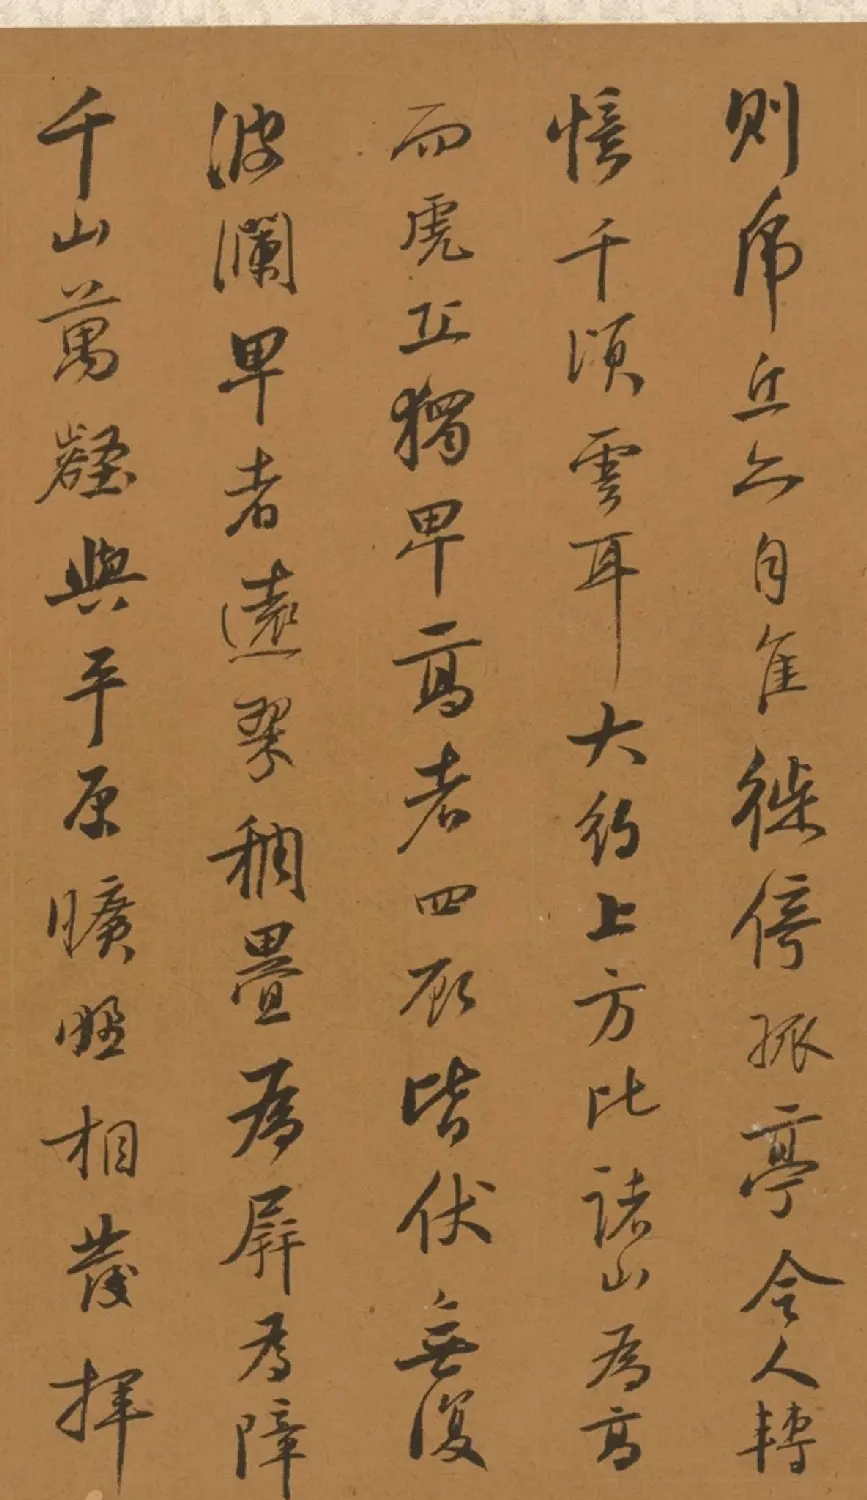 則虎丘亦自佳徙倚孤亭令人轉
憶千頃雲耳大約上方比諸山為高
而虎丘獨卑高者四顧皆伏無復
波瀾卑者遠翠稠疊為屏為障
千山萬壑與平原曠野相發揮